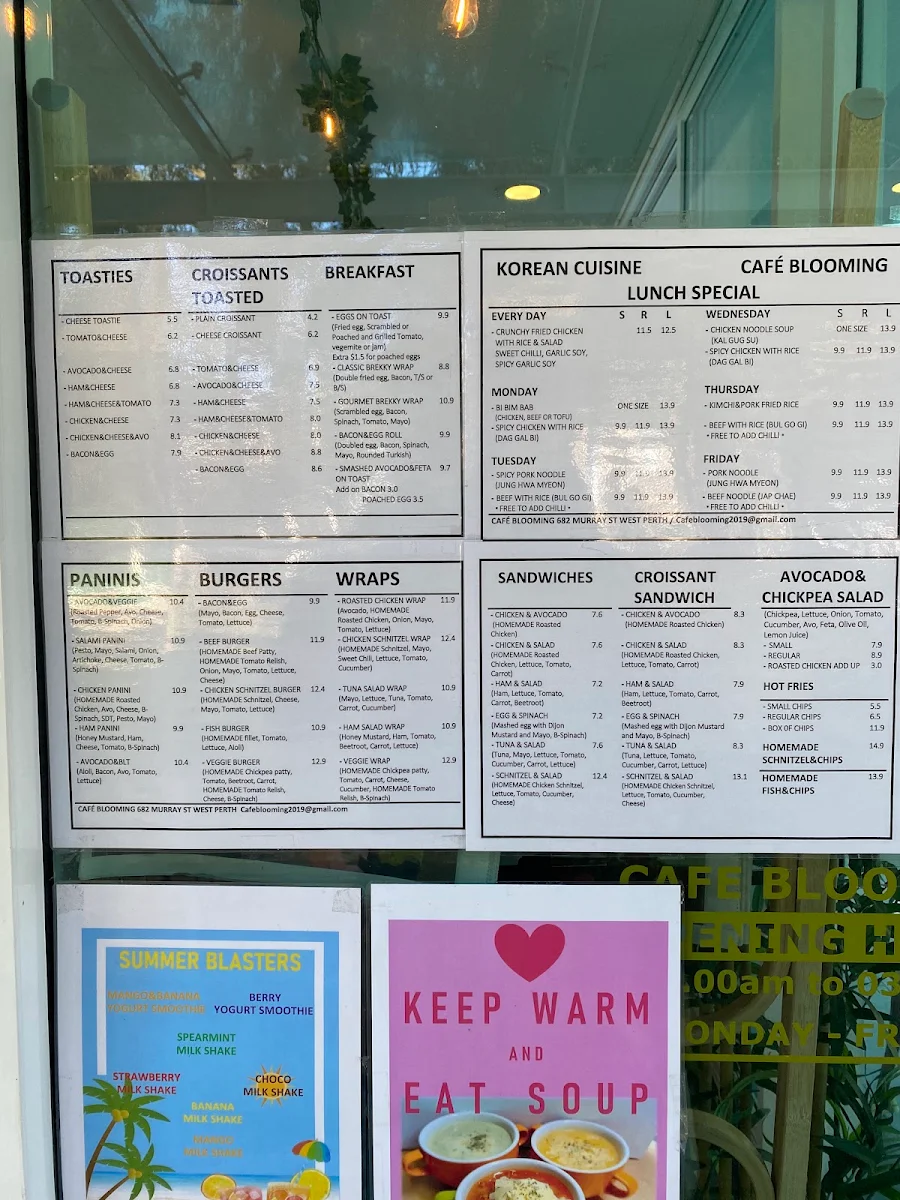 TOASTIES
- CHEESE TOASTIE 5.5
- TOMATO&CHEESE 6.2
- AVOCADO&CHEESE 6.8
- HAM&CHEESE 6.8
- HAM&CHEESE&TOMATO 7.3
- CHICKEN&CHEESE 7.3
- CHICKEN&CHEESE&AVO 8.1
- BACON&EGG 7.9
CROISSANTS
TOASTED
- PLAIN CROISSANT 4.2
- CHEESE CROISSANT 6.2
- TOMATO&CHEESE 6.9
- AVOCADO&CHEESE 7.5
- HAM&CHEESE 7.5
- HAM&CHEESE&TOMATO 8.0
- CHICKEN&CHEESE 8.0
- CHICKEN&CHEESE&AVO 8.8
- BACON&EGG 8.6
BREAKFAST
- EGGS ON TOAST 9.9
(Fried egg, Scrambled or
Poached and Grilled Tomato,
vegemite or jam)
Extra $1.5 for poached eggs
- CLASSIC BREKKY WRAP 8.8
(Double fried egg, Bacon, T/S or
B/S)
- GOURMET BREKKY WRAP 10.9
(Scrambled egg, Bacon,
Spinach, Tomato, Mayo)
- BACON&EGG ROLL 9.9
(Doubled egg, Bacon, Spinach,
Mayo, Rounded Turkish)
- SMASHED AVOCADO&FETA 9.7
ON TOAST
Add on BACON 3.0
POACHED EGG 3.5
KOREAN CUISINE CAFÉ BLOOMING
LUNCH SPECIAL
EVERY DAY S R L
- CRUNCHY FRIED CHICKEN 11.5 12.5
WITH RICE & SALAD
SWEET CHILLI, GARLIC SOY,
SPICY GARLIC SOY
MONDAY
- BI BIM BAB ONE SIZE 13.9
(CHICKEN, BEEF OR TOFU)
- SPICY CHICKEN WITH RICE 9.9 11.9 13.9
(DAG GAL BI)
TUESDAY
- SPICY PORK NOODLE 9.9 11.9 13.9
(JUNG HWA MYEON)
- BEEF WITH RICE (BUL GO GI) 9.9 11.9 13.9
• FREE TO ADD CHILLI •
WEDNESDAY S R L
- CHICKEN NOODLE SOUP ONE SIZE 13.9
(KAL GUG SU)
- SPICY CHICKEN WITH RICE 9.9 11.9 13.9
(DAG GAL BI)
THURSDAY
- KIMCHI&PORK FRIED RICE 9.9 11.9 13.9
- BEEF WITH RICE (BUL GO GI) 9.9 11.9 13.9
• FREE TO ADD CHILLI •
FRIDAY
- PORK NOODLE 9.9 11.9 13.9
(JUNG HWA MYEON)
- BEEF NOODLE (JAP CHAE) 9.9 11.9 13.9
• FREE TO ADD CHILLI •
CAFÉ BLOOMING 682 MURRAY ST WEST PERTH / Cafeblooming2019@gmail.com
PANINIS
- AVOCADO&VEGGIE 10.4
(Roasted Pepper, Avo, Cheese,
Tomato, B-Spinach, Onion)
- SALAMI PANINI 10.9
(Pesto, Mayo, Salami, Onion,
Artichoke, Cheese, Tomato, B-
Spinach)
- CHICKEN PANINI 10.9
(HOMEMADE Roasted
Chicken, Avo, Cheese, B-
Spinach, SDT, Pesto, Mayo)
- HAM PANINI 9.9
(Honey Mustard, Ham,
Cheese, Tomato, B-Spinach)
- AVOCADO&BLT 10.4
(Aioli, Bacon, Avo, Tomato,
Lettuce)
BURGERS
- BACON&EGG 9.9
(Mayo, Bacon, Egg, Cheese,
Tomato, Lettuce)
- BEEF BURGER 11.9
(HOMEMADE Beef Patty,
HOMEMADE Tomato Relish,
Onion, Mayo, Tomato, Lettuce,
Cheese)
- CHICKEN SCHNITZEL BURGER 12.4
(HOMEMADE Schnitzel, Cheese,
Mayo, Tomato, Lettuce)
- FISH BURGER 10.9
(HOMEMADE fillet, Tomato,
Lettuce, Aioli)
- VEGGIE BURGER 12.9
(HOMEMADE Chickpea patty,
Tomato, Beetroot, Carrot,
HOMEMADE Tomato Relish,
Cheese, B-Spinach)
WRAPS
- ROASTED CHICKEN WRAP 11.9
(Avocado, HOMEMADE
Roasted Chicken, Onion, Mayo,
Tomato, Lettuce)
- CHICKEN SCHNITZEL WRAP 12.4
(HOMEMADE Schnitzel, Mayo,
Sweet Chilli, Lettuce, Tomato,
Cucumber)
- TUNA SALAD WRAP 10.9
(Mayo, Lettuce, Tuna, Tomato,
Carrot, Cucumber)
- HAM SALAD WRAP 10.9
(Honey Mustard, Ham, Tomato,
Beetroot, Carrot, Lettuce)
- VEGGIE WRAP 12.9
(HOMEMADE Chickpea patty,
Tomato, Carrot, Cheese,
Cucumber, HOMEMADE Tomato
Relish, B-Spinach)
CAFÉ BLOOMING 682 MURRAY ST WEST PERTH Cafeblooming2019@gmail.com
SANDWICHES
- CHICKEN & AVOCADO 7.6
(HOMEMADE Roasted
Chicken)
- CHICKEN & SALAD 7.6
(HOMEMADE Roasted
Chicken, Lettuce, Tomato,
Carrot)
- HAM & SALAD 7.2
(Ham, Lettuce, Tomato,
Carrot, Beetroot)
- EGG & SPINACH 7.2
(Mashed egg with Dijon
Mustard and Mayo, B-Spinach)
- TUNA & SALAD 7.6
(Tuna, Mayo, Lettuce, Tomato,
Cucumber, Carrot, Lettuce)
- SCHNITZEL & SALAD 12.4
(HOMEMADE Chicken Schnitzel,
Lettuce, Tomato, Cucumber,
Cheese)
CROISSANT
SANDWICH
- CHICKEN & AVOCADO 8.3
(HOMEMADE Roasted Chicken)
- CHICKEN & SALAD 8.3
(HOMEMADE Roasted Chicken,
Lettuce, Tomato, Carrot)
- HAM & SALAD 7.9
(Ham, Lettuce, Tomato, Carrot,
Beetroot)
- EGG & SPINACH 7.9
(Mashed egg with Dijon Mustard
and Mayo, B-Spinach)
- TUNA & SALAD 8.3
(Tuna, Mayo, Lettuce, Tomato,
Cucumber, Carrot, Lettuce)
- SCHNITZEL & SALAD 13.1
(HOMEMADE Chicken Schnitzel,
Lettuce, Tomato, Cucumber,
Cheese)
AVOCADO&
CHICKPEA SALAD
(Chickpea, Lettuce, Onion, Tomato,
Cucumber, Avo, Feta, Olive Oil,
Lemon Juice)
- SMALL 7.9
- REGULAR 8.9
- ROASTED CHICKEN ADD UP 3.0
HOT FRIES
- SMALL CHIPS 5.5
- REGULAR CHIPS 6.5
- BOX OF CHIPS 11.9
HOMEMADE 14.9
SCHNITZEL&CHIPS
HOMEMADE 13.9
FISH&CHIPS
SUMMER BLASTERS
MANGO&BANANA
YOGURT SMOOTHIE
BERRY
YOGURT SMOOTHIE
SPEARMINT
MILK SHAKE
STRAWBERRY
MILK SHAKE
CHOCO
MILK SHAKE
BANANA
MILK SHAKE
MILK SHAKE
KEEP WARM
AND
EAT SOUP
CAFE BLOO
ENING H
.00am to 03
ONDAY - FR